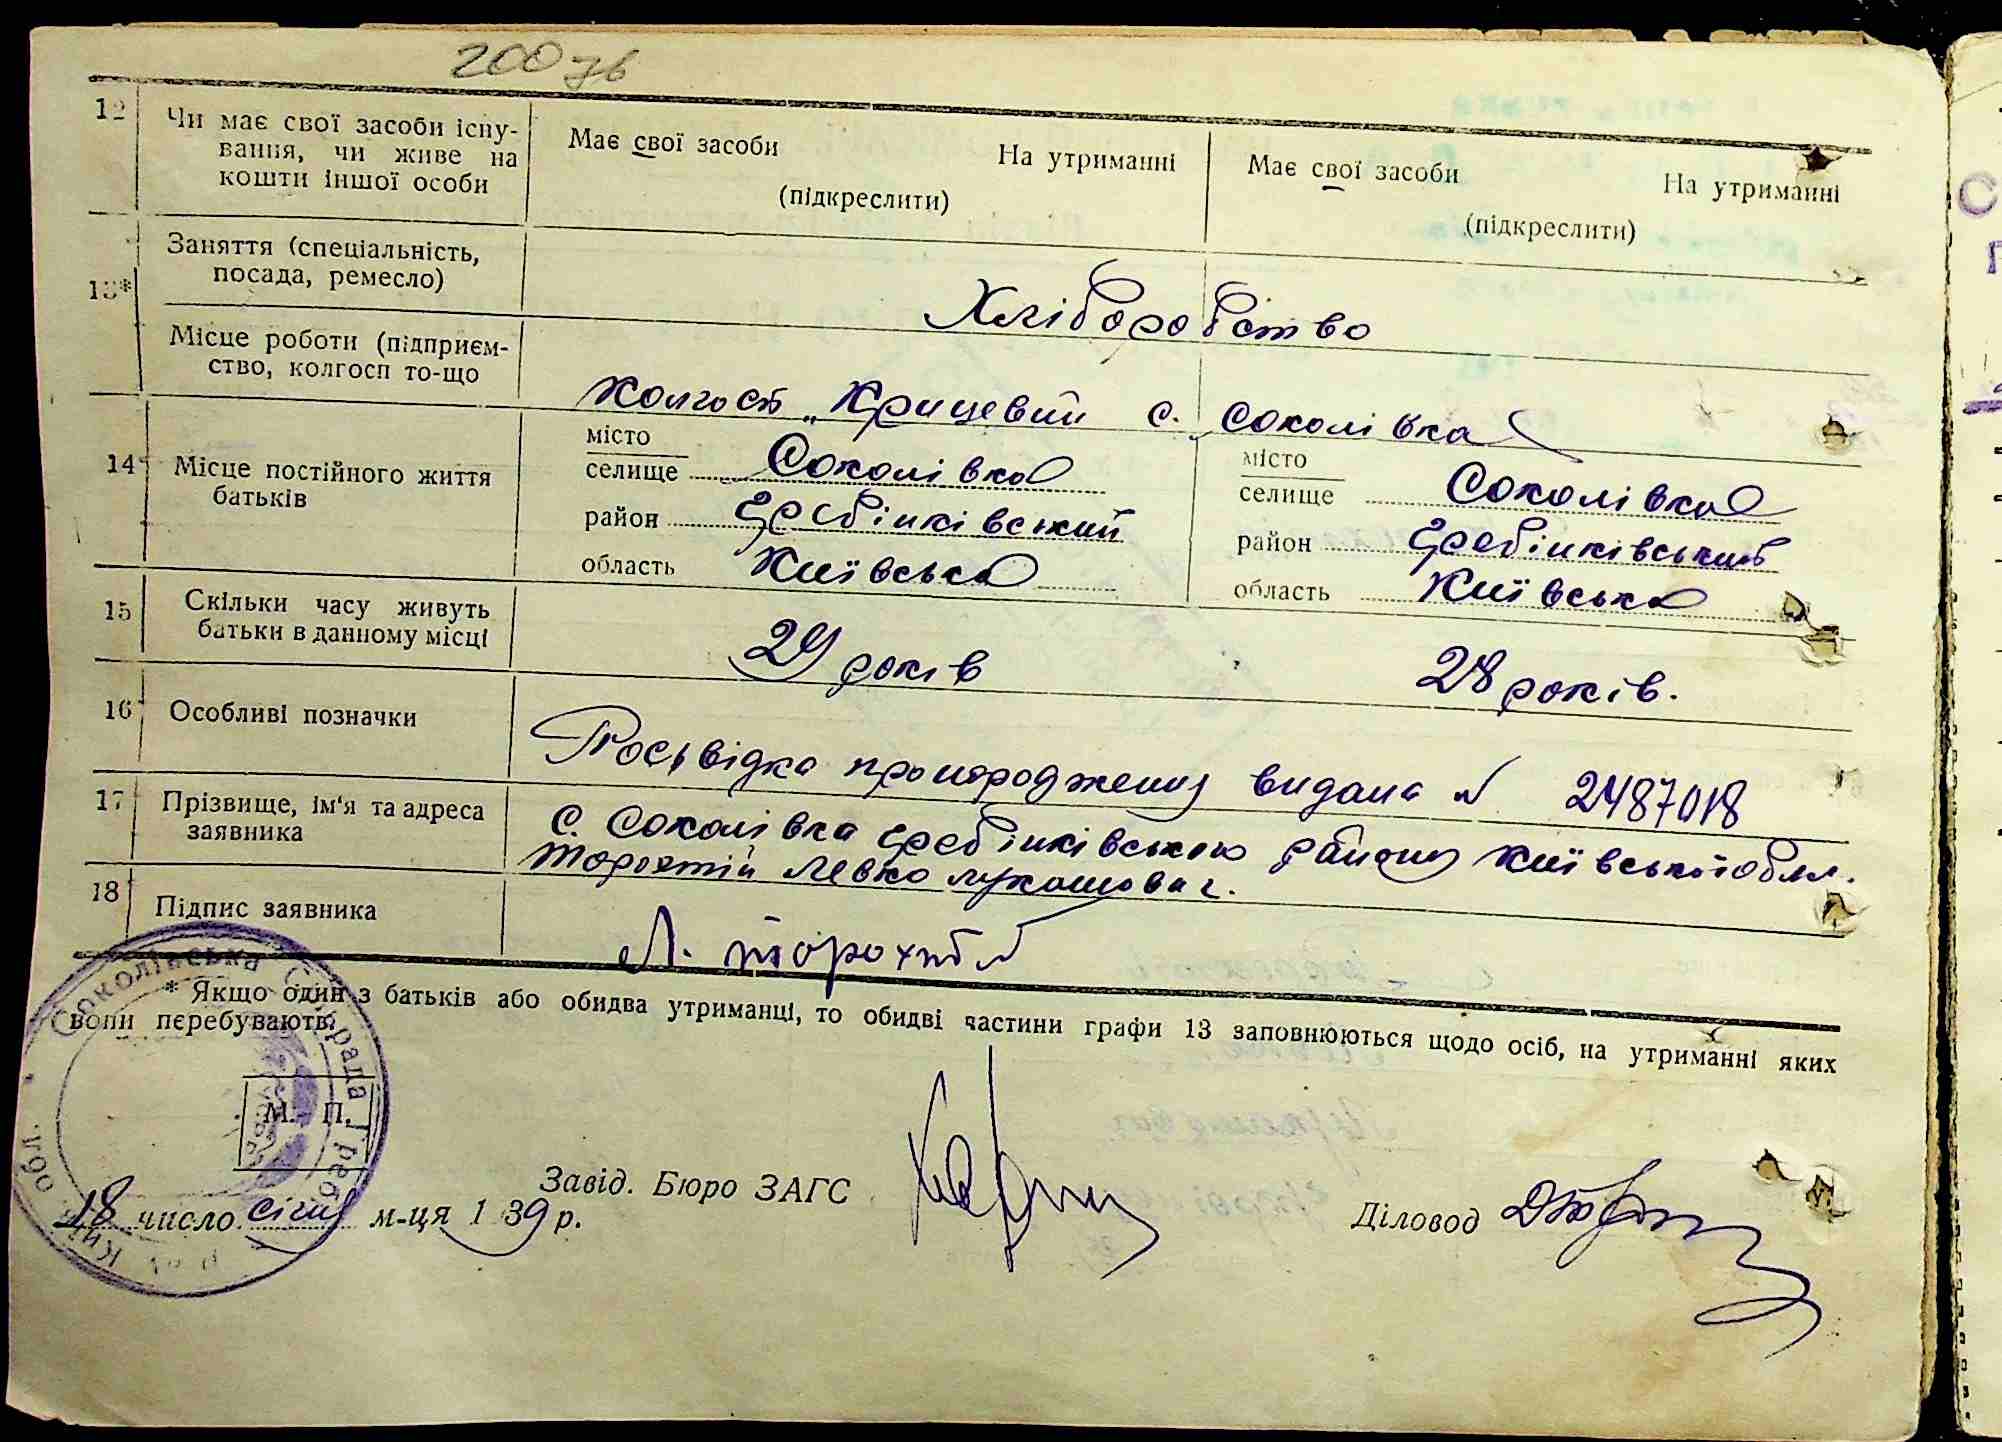 200 зв
12
Чи має свої засоби існу-
вання, чи живе на
кошти іншої особи
Має свої засоби На утриманні
(підкреслити)
Має свої засоби На утриманні
(підкреслити)
13*
Заняття (спеціальність,
посада, ремесло)
Хліборобство
Місце роботи (підприєм-
ство, колгосп то-що
Колгосп „Крицевий с. Соколівка
14
Місце постійного життя
батьків
місто
селище Соколівка
район Гребінківський
область Київська
місто
селище Соколівка
район Гребінківський
область Київська
15
Скільки часу живуть
батьки в данному місці
29 років 28 років.
16
Особливі позначки
Посьвідка про народження видана № 2487018
17
Прізвище, ім'я та адреса
заявника
С. Соколівка Гребінківського району Київської обл.
Торохтій Левко Лукашович.
18
Підпис заявника
Л. Торохтій
* Якщо один з батьків або обидва утриманці, то обидві частини графи 13 заповнюються щодо осіб, на утриманні яких
вони перебувають.
Соколівська Сільрада Греб
Київ. обл.
М. П.
18 число січня м-ця 1 39 р.
Завід. Бюро ЗАГС
Діловод